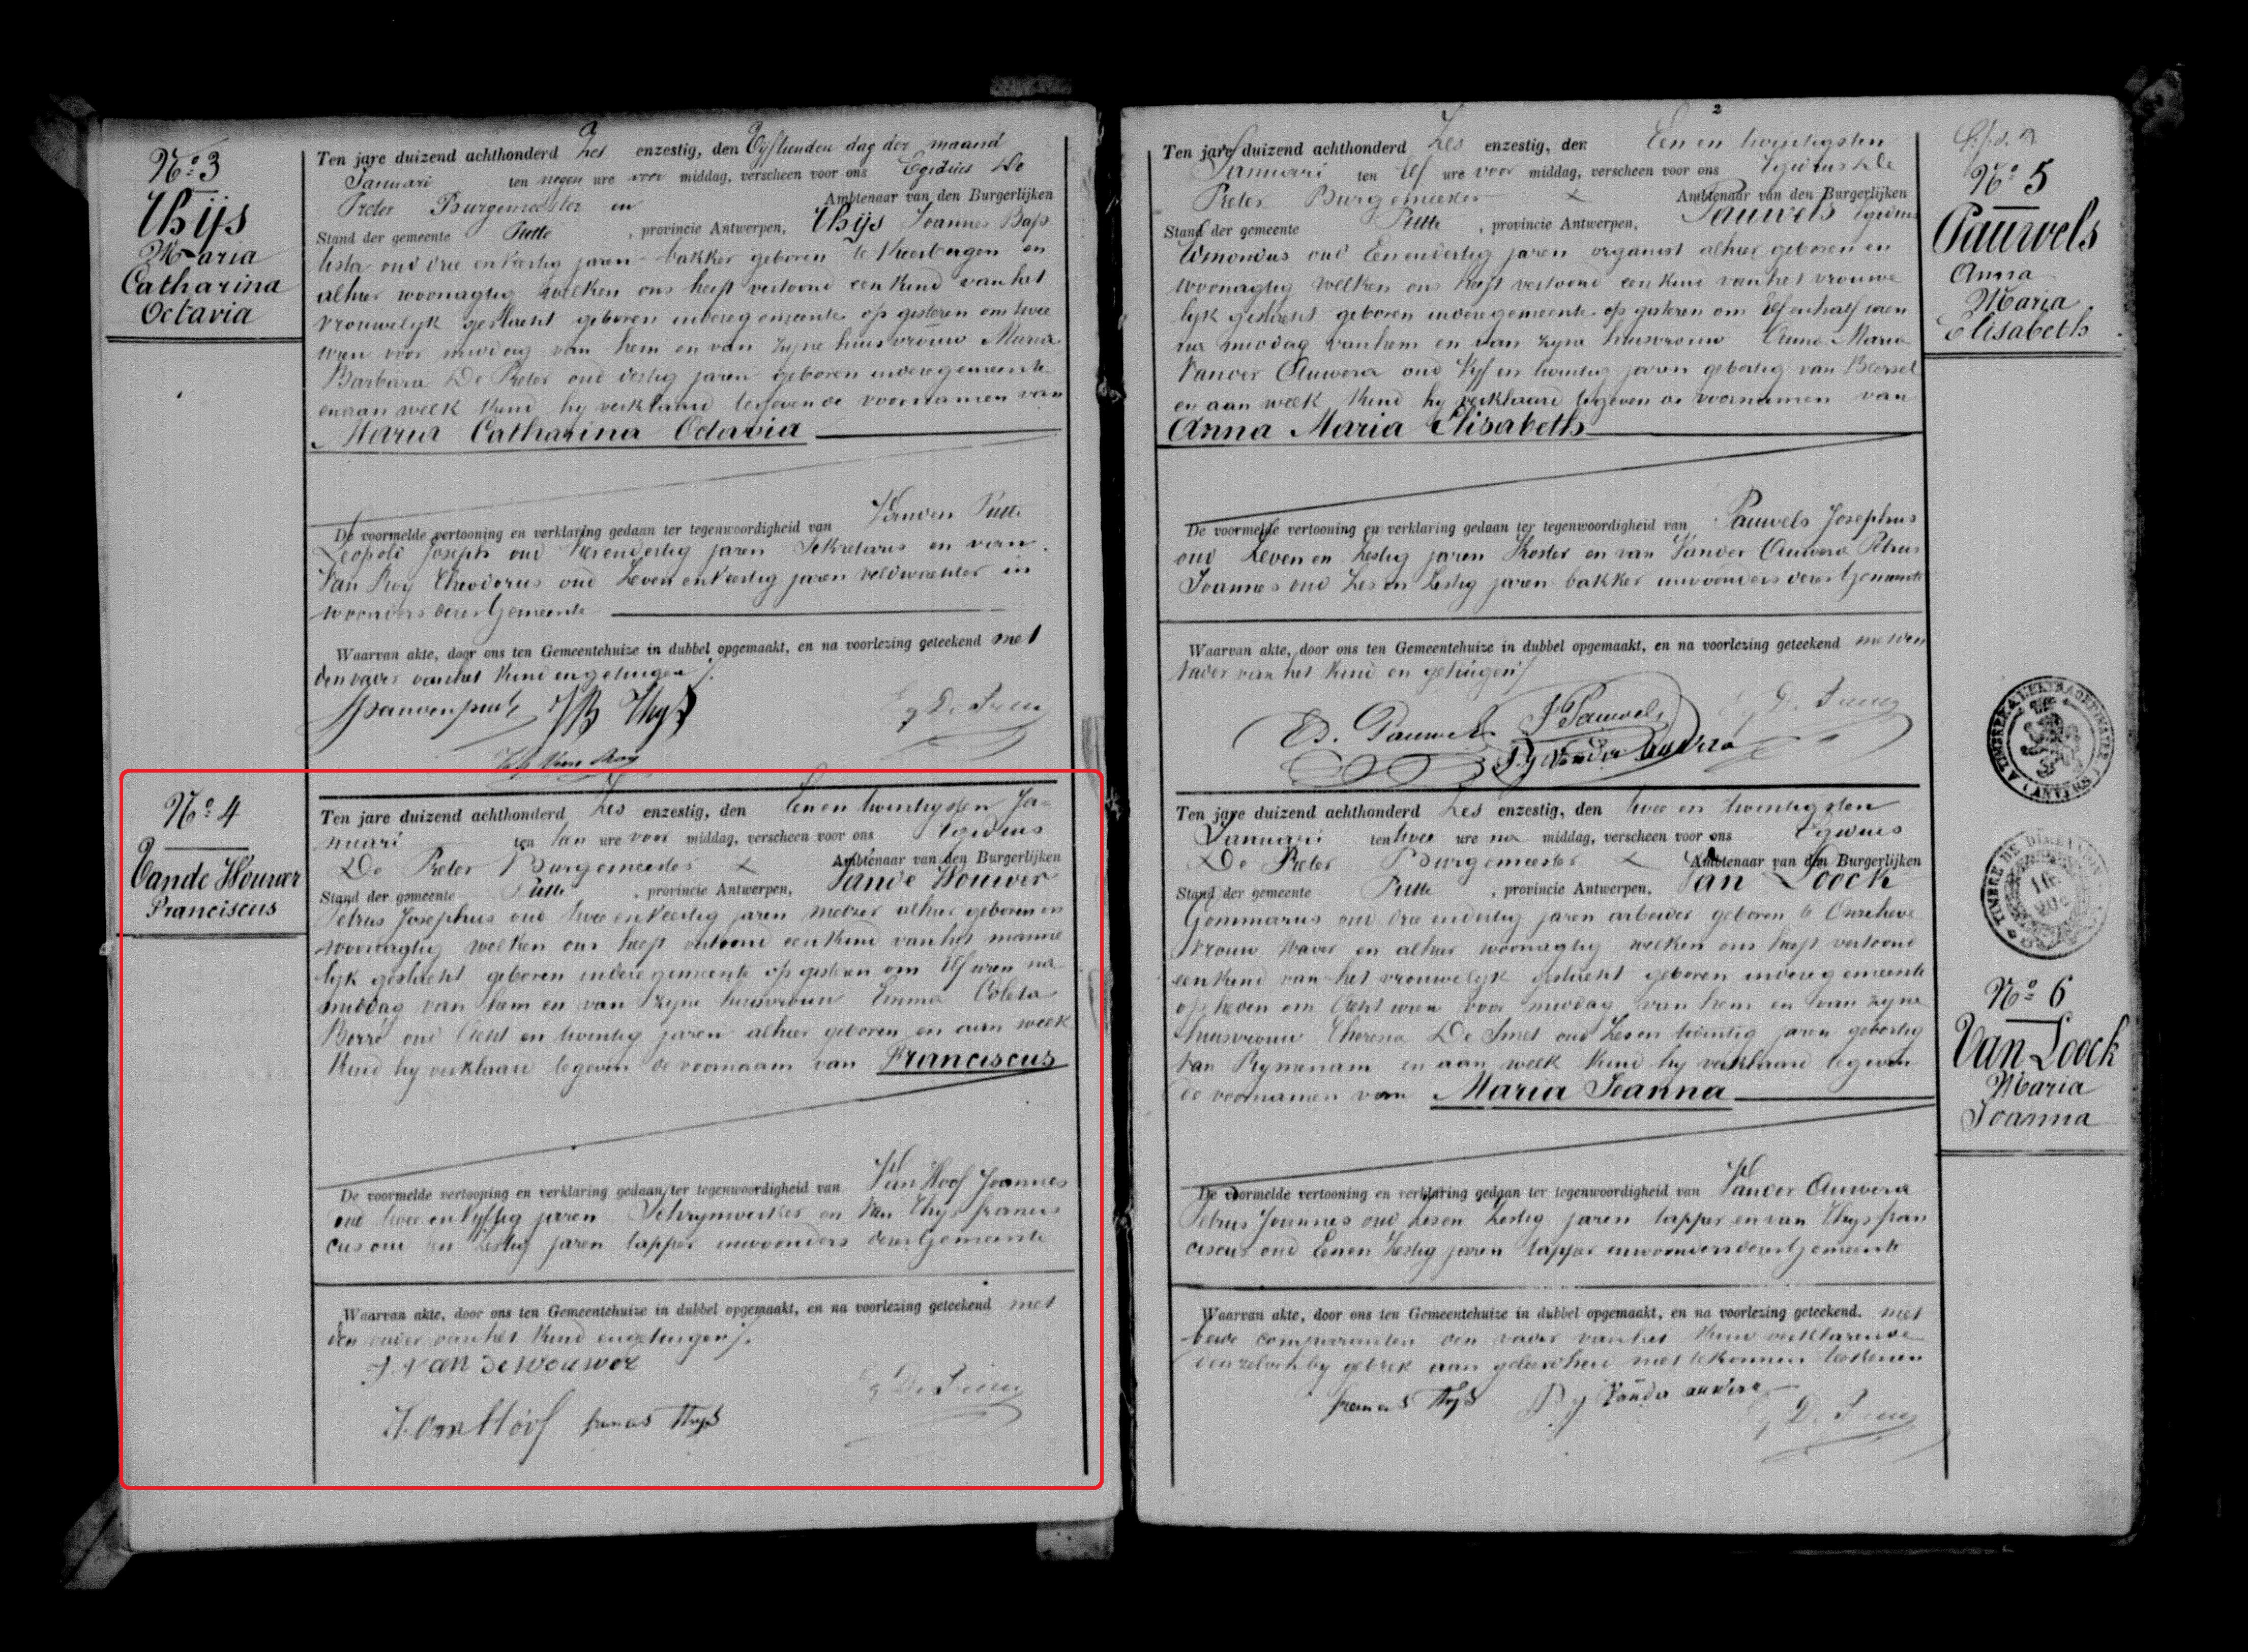 Nº 3
Thijs
Maria
Catharina
Octavia
Ten jare duizend achthonderd Zes enzestig, den Vyftienden dag der maand
Januari ten negen ure voor middag, verscheen voor ons Egidius De
Preter Burgemeester en Ambtenaar van den Burgerlijken
Stand der gemeente Putte, provincie Antwerpen, Thijs Joannes Bap
tista oud drie en Veertig jaren bakker geboren te Keerbergen en
alhier woonagtig welken ons heeft vertoond een kind van het
vrouwelyk geslacht geboren indeze gemeente op gisteren om twee
uren voor middag van hem en van zyne huisvrouw Maria
Barbara De Preter oud dertig jaren geboren indeze gemeente
en aan welk kind hy verklaard tegeven de voornamen van
Maria Catharina Octavia
De voormelde vertooning en verklaring gedaan ter tegenwoordigheid van Vanden Putte
Leopold Joseph oud Vierendertig jaren Sekretaris en van
Van Roy Theodorus oud Zeven en Veertig jaren veldwachter in
woonders dezer Gemeente
Waarvan akte, door ons ten Gemeentehuize in dubbel opgemaakt, en na voorlezing geteekend met
den vader van het kind en getuigen /.
JB Thys
Eg De Preter
Nº 4
Vande Wouwer
Franciscus
Ten jare duizend achthonderd Zes enzestig, den Eenen twintigsten Ja-
nuari ten tien ure voor middag, verscheen voor ons Egidius
De Preter Burgemeester Ambtenaar van den Burgerlijken
Stand der gemeente Putte, provincie Antwerpen, Vande Wouwer
Petrus Josephus oud twee en Veertig jaren metzer alhier geboren en
woonagtig welken ons heeft vertoond een kind van het manne
lyk geslacht geboren indeze gemeente op gisteren om Elf uren na
middag van hem en van zyne huisvrouw Emma Coleta
Borré oud Acht en twintig jaren alhier geboren en aan welk
kind hy verklaard tegeven de voornaam van Franciscus
De voormelde vertooning en verklaring gedaan ter tegenwoordigheid van Van Hoof Joannes
oud twee en Vyftig jaren Schrynwerker en van Thys Francis
cus oud en Zestig jaren tapper inwoonders dezer Gemeente
Waarvan akte, door ons ten Gemeentehuize in dubbel opgemaakt, en na voorlezing geteekend met
den vader van het kind en getuigen /.
J. van de wouwer
J. Van Hoof francis Thys
Eg De Preter
2
Ten jare duizend achthonderd Zes enzestig, den Een en twintigsten
Januari ten Elf ure voor middag, verscheen voor ons Egidius De
Preter Burgemeester Ambtenaar van den Burgerlijken
Stand der gemeente Putte, provincie Antwerpen, Pauwels Egidius
Edmondus oud Eenendertig jaren organist alhier geboren en
woonagtig welken ons heeft vertoond een kind van het vrouwe
lyk geslacht geboren indeze gemeente op gisteren om Elf en half uren
na middag van hem en van zyne huisvrouw Anna Maria
Vander Auwera oud Vyf en twintig jaren geboortig van Beersel
en aan welk kind hy verklaard tegeven de voornamen van
Anna Maria Elisabeth
De voormelde vertooning en verklaring gedaan ter tegenwoordigheid van Pauwels Josephus
oud Zeven en Zestig jaren Koster en van Vander Auwera Petrus
Joannes oud Zes en Zestig jaren bakker inwoonders dezer Gemeente
Waarvan akte, door ons ten Gemeentehuize in dubbel opgemaakt, en na voorlezing geteekend met den
vader van het kind en getuigen /
Ed. Pauwels J Pauwels
P. J Vander auwera
Eg De Preter
Nº 5
Pauwels
Anna
Maria
Elisabeth
Ten jare duizend achthonderd Zes enzestig, den twee en twintigsten
Januari ten twee ure na middag, verscheen voor ons Egidius
De Preter Burgemeester Ambtenaar van den Burgerlijken
Stand der gemeente Putte, provincie Antwerpen, Van Loock
Gommarus oud drie endertig jaren arbeider geboren te Onzelieve
vrouw Waver en alhier woonagtig welken ons heeft vertoond
een kind van het vrouwelyk geslacht geboren indeze gemeente
op heden om Acht uren voor middag van hem en van zyne
huisvrouw Theresia De Smet oud Zes en twintig jaren geboortig
van Rymenam en aan welk kind hy verklaard tegeven
de voornamen van Maria Joanna
De voormelde vertooning en verklaring gedaan ter tegenwoordigheid van Vander Auwera
Petrus Joannes oud Zes en Zestig jaren tapper en van Thys Fran
ciscus oud Eenen Zestig jaren tapper inwoonders dezer Gemeente
Waarvan akte, door ons ten Gemeentehuize in dubbel opgemaakt, en na voorlezing geteekend. met
beide comparanten den vader van het kind verklarende
denzelven by gebrek aan geleerdheid niet te konnen teekenen
francis Thys P J Vander auwera
Eg De Preter
Nº 6
Van Loock
Maria
Joanna